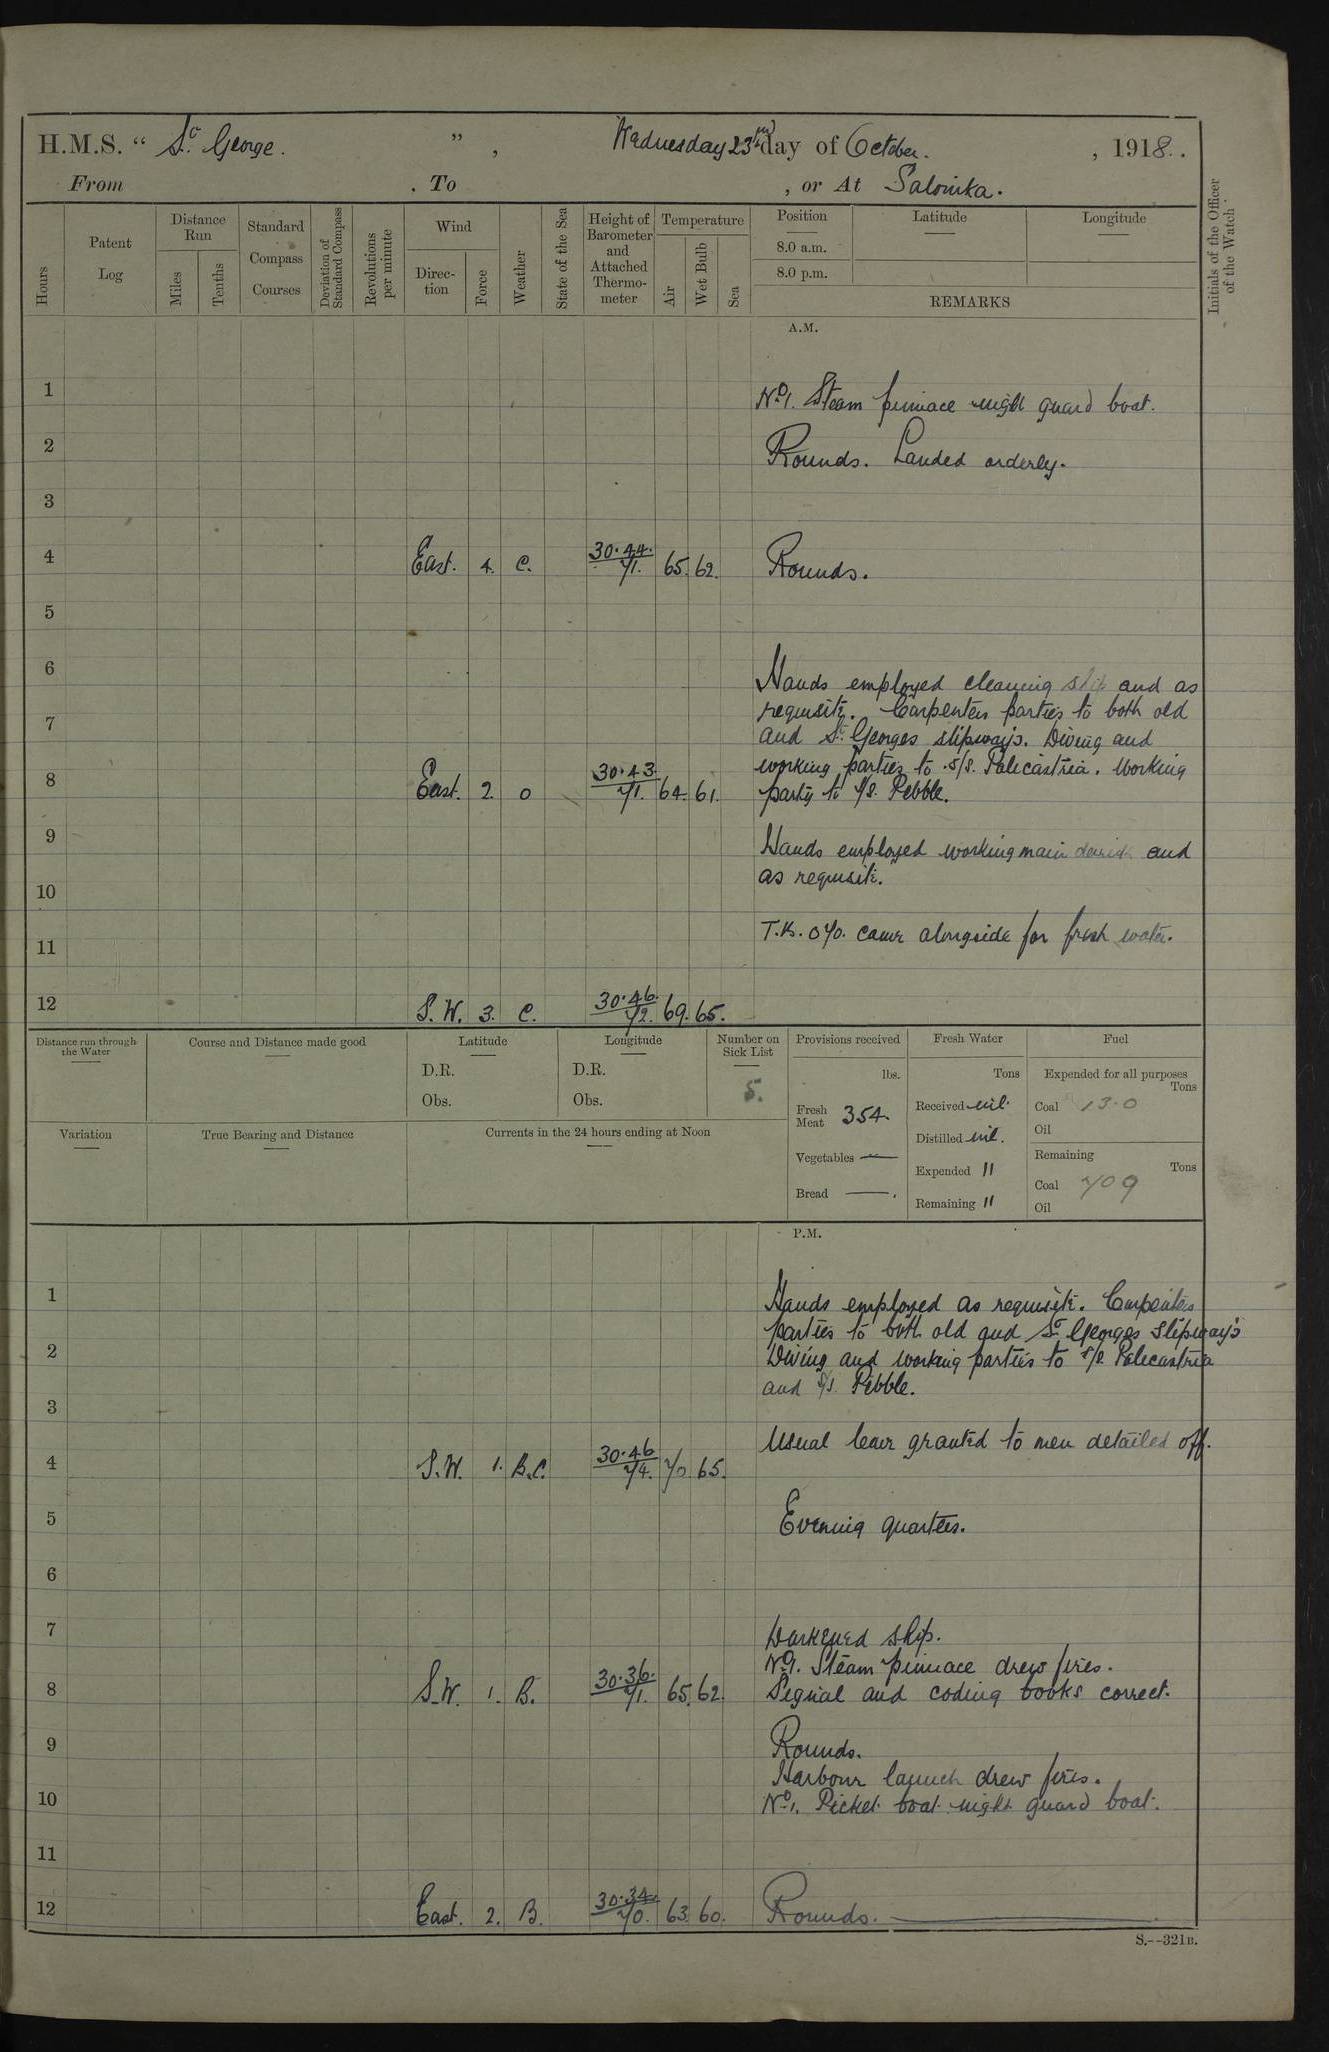 H.M.S. " St. George. " , Wednesday 23rd day of October. , 1918.
From . To , or At Salonika.
Hours
Patent Log
Distance Run
Miles
Tenths
Standard Compass Courses
Deviation of Standard Compass
Revolutions per minute
Wind
Direction
Force
Weather
State of the Sea
Height of Barometer and Attached Thermometer
Temperature
Air
Wet Bulb
Sea
Position
8.0 a.m.
8.0 p.m.
Latitude
Longitude
REMARKS
Initials of the Officer of the Watch
A.M.
1
No. 1. Steam pinnace night guard boat.
2
Rounds. Landed orderly.
3
4 East. 4. C. 30.44. 71. 65. 62. Rounds.
5
6
Hands employed cleaning ship and as
requisite. Carpenters parties to both old
7
and St. Georges slipways. Diving and
working parties to S/S. Palecastria. Working
8 East. 2. O 30.43. 71. 64. 61. party to S/S. Pebble.
9
Hands employed working main derrick and
as requisite.
10
T.K. 070. came alongside for fresh water.
11
12 S.W. 3. C. 30.46. 72. 69. 65.
Distance run through the Water
Course and Distance made good
Latitude
D.R.
Obs.
Longitude
D.R.
Obs.
Number on Sick List
5.
Provisions received
lbs.
Fresh Meat 354.
Vegetables —
Bread — .
Fresh Water
Tons
Received nil.
Distilled nil.
Expended "
Remaining "
Fuel
Expended for all purposes
Tons
Coal 13.0
Oil
Remaining
Tons
Coal 709
Oil
Variation
True Bearing and Distance
Currents in the 24 hours ending at Noon
P.M.
1
Hands employed as requisite. Carpenters
parties to both old and St. Georges slipway's
2
Diving and working parties to S/S. Palecastria
and S/S. Pebble.
3
Usual leave granted to men detailed off.
4 S.W. 1. B.C. 30.46 74. 70 65.
5 Evening quarters.
6
7 Darkened ship.
No. 1. Steam pinnace drew fires.
8 S.W. 1. B. 30.36. 71. 65. 62. Signal and coding books correct.
9 Rounds.
Harbour launch drew fires.
10 No. 1. Picket boat night guard boat.
11
12 East. 2. B. 30.34. 70. 63. 60. Rounds.
S.--321B.